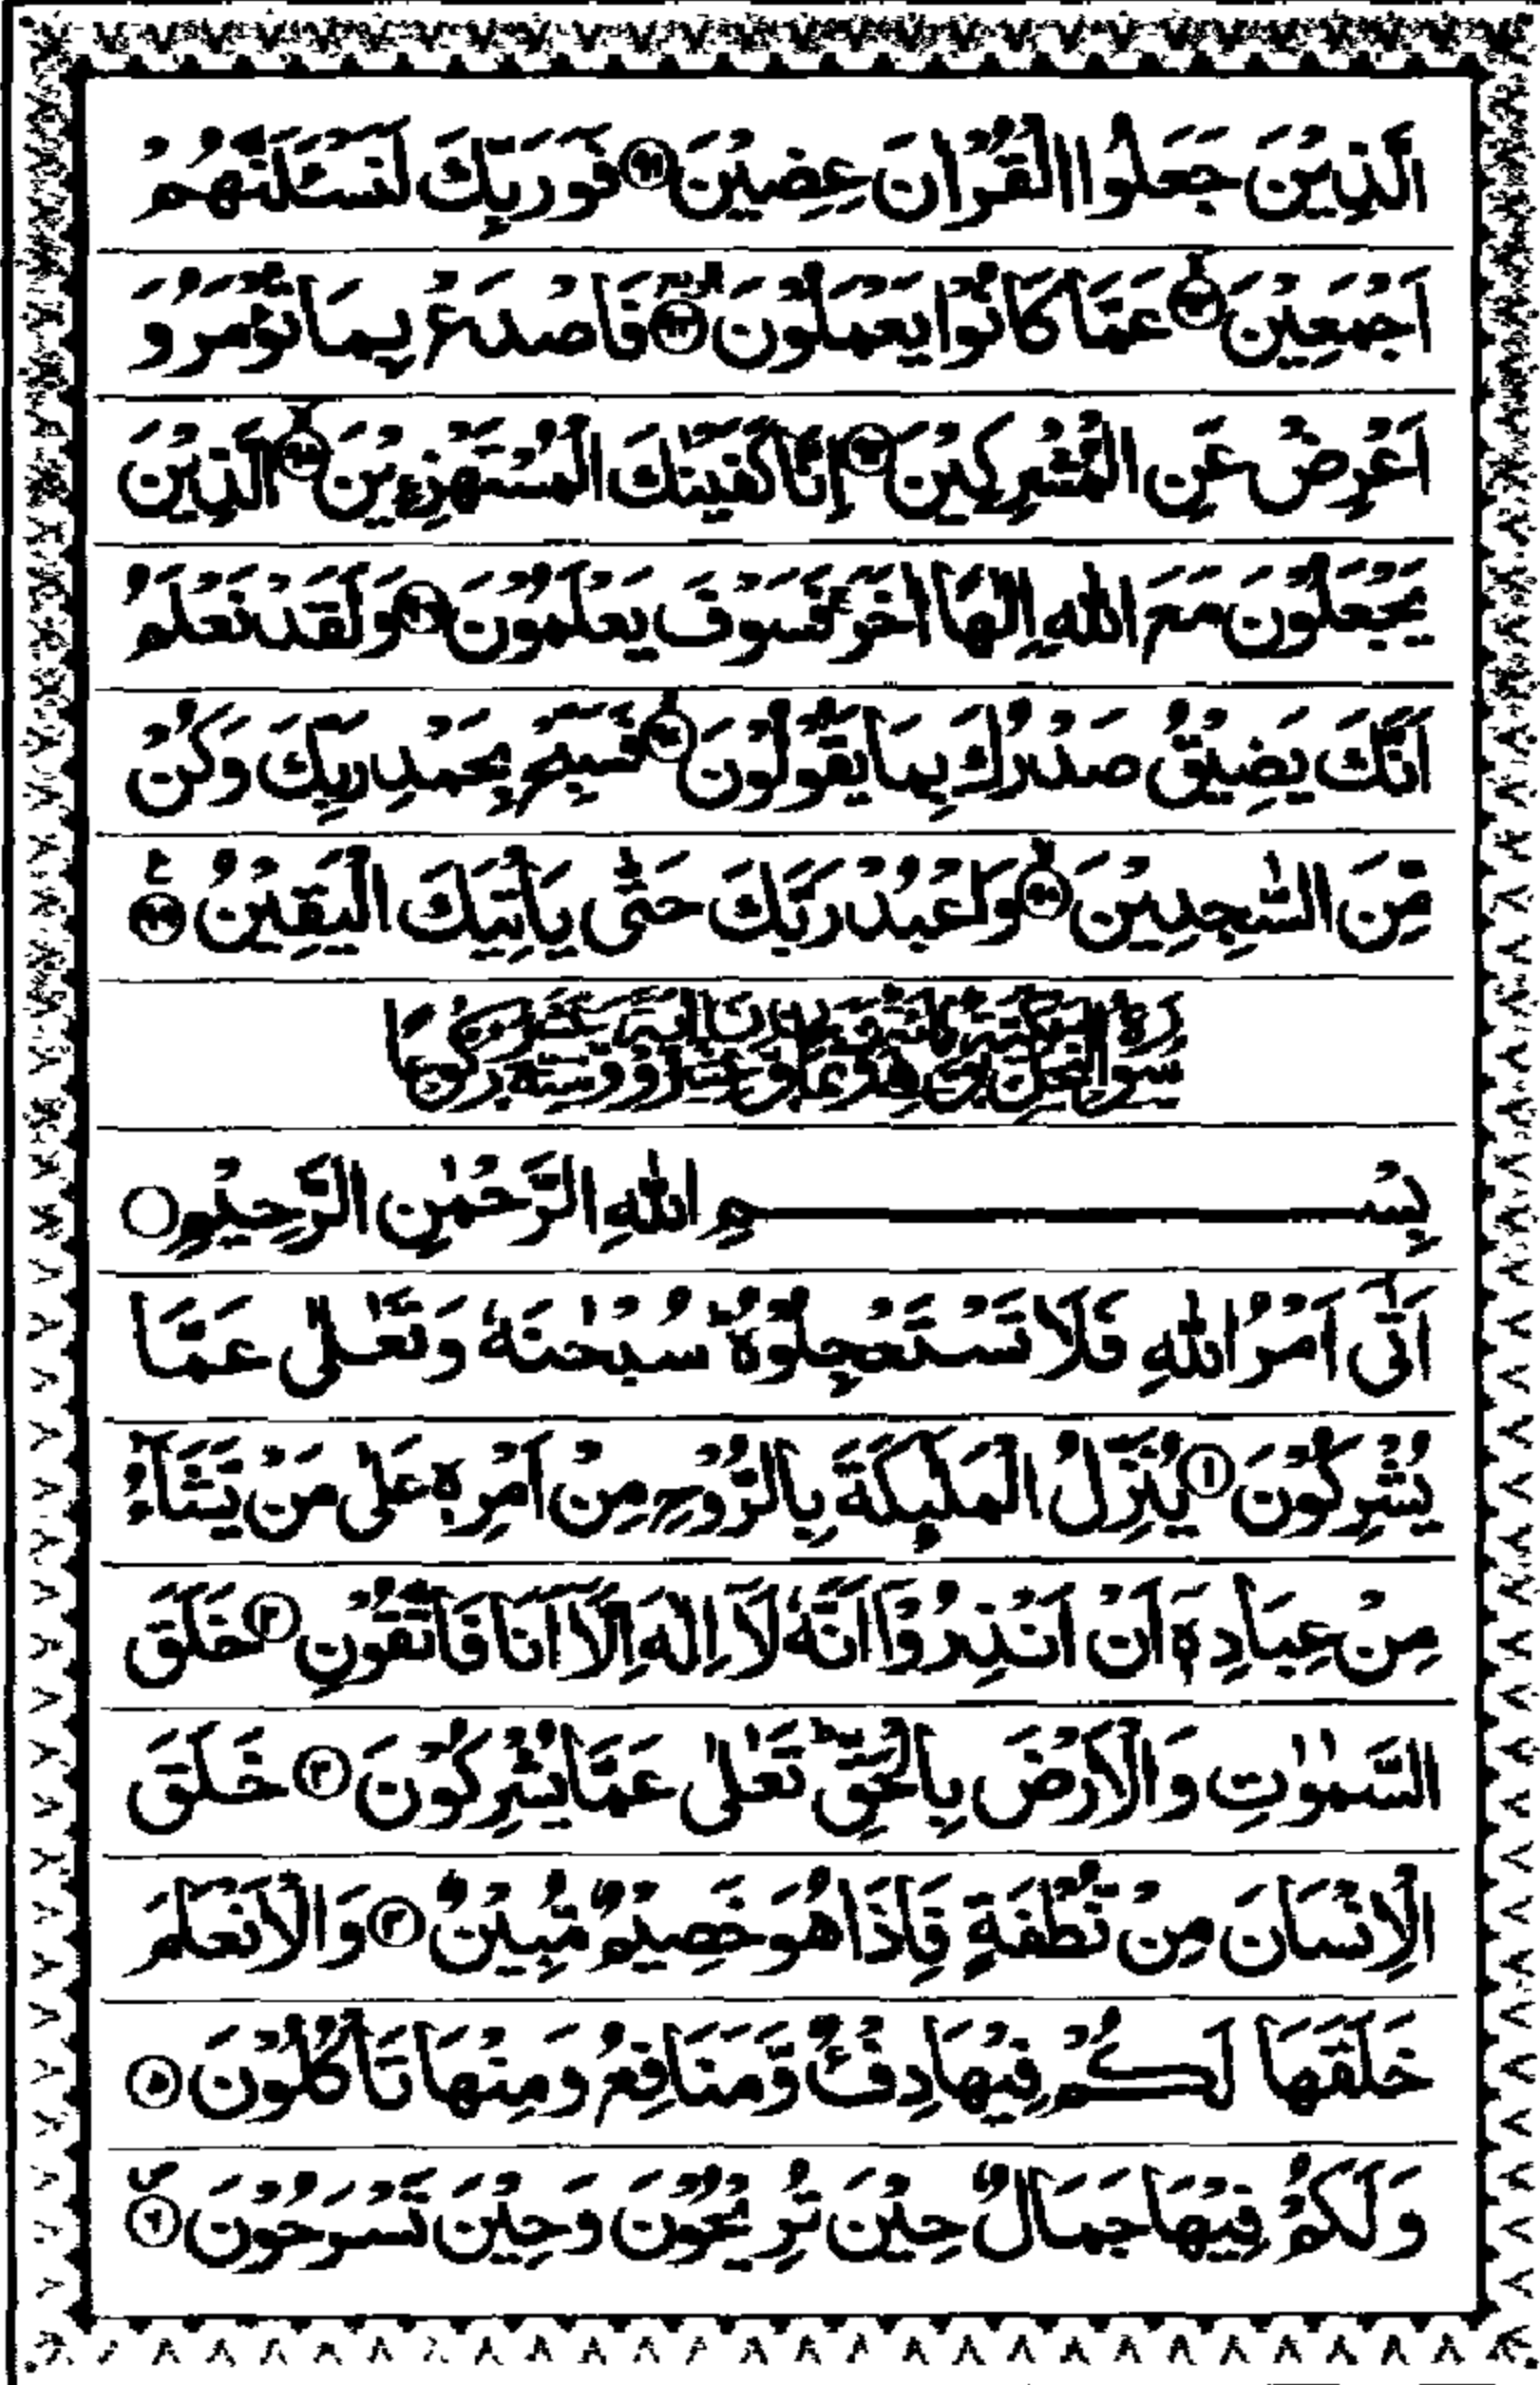 الَّذِيْنَ جَعَلُوا الْقُرْاٰنَ عِضِيْنَ ۹۱ فَوَرَبِّكَ لَنَسْـَٔلَنَّهُمْ
اَجْمَعِيْنَ ۹۲ عَمَّا كَانُوْا يَعْمَلُوْنَ ۹۳ فَاصْدَعْ بِمَا تُؤْمَرُ وَ
اَعْرِضْ عَنِ الْمُشْرِكِيْنَ ۹۴ اِنَّا كَفَيْنٰكَ الْمُسْتَهْزِءِيْنَ ۹۵ الَّذِيْنَ
يَجْعَلُوْنَ مَعَ اللّٰهِ اِلٰهًا اٰخَرَ ۚ فَسَوْفَ يَعْلَمُوْنَ ۹۶ وَلَقَدْ نَعْلَمُ
اَنَّكَ يَضِيْقُ صَدْرُكَ بِمَا يَقُوْلُوْنَ ۹۷ فَسَبِّحْ بِحَمْدِ رَبِّكَ وَكُنْ
مِّنَ السّٰجِدِيْنَ ۹۸ وَاعْبُدْ رَبَّكَ حَتّٰى يَاْتِيَكَ الْيَقِيْنُ ۹۹ ع
بِسْمِ اللّٰهِ الرَّحْمٰنِ الرَّحِيْمِ
اَتٰٓى اَمْرُ اللّٰهِ فَلَا تَسْتَعْجِلُوْهُ ؕ سُبْحٰنَهٗ وَتَعٰلٰى عَمَّا
يُشْرِكُوْنَ ۱ يُنَزِّلُ الْمَلٰٓئِكَةَ بِالرُّوْحِ مِنْ اَمْرِهٖ عَلٰى مَنْ يَّشَآءُ
مِنْ عِبَادِهٖۤ اَنْ اَنْذِرُوْۤا اَنَّهٗ لَاۤ اِلٰهَ اِلَّاۤ اَنَا فَاتَّقُوْنِ ۲ خَلَقَ
السَّمٰوٰتِ وَالْاَرْضَ بِالْحَقِّ ؕ تَعٰلٰى عَمَّا يُشْرِكُوْنَ ۳ خَلَقَ
الْاِنْسَانَ مِنْ نُّطْفَةٍ فَاِذَا هُوَ خَصِيْمٌ مُّبِيْنٌ ۴ وَالْاَنْعَامَ
خَلَقَهَا لَكُمْ فِيْهَا دِفْءٌ وَّمَنَافِعُ وَمِنْهَا تَاْكُلُوْنَ ۵
وَلَكُمْ فِيْهَا جَمَالٌ حِيْنَ تُرِيْحُوْنَ وَحِيْنَ تَسْرَحُوْنَ ۶ ص